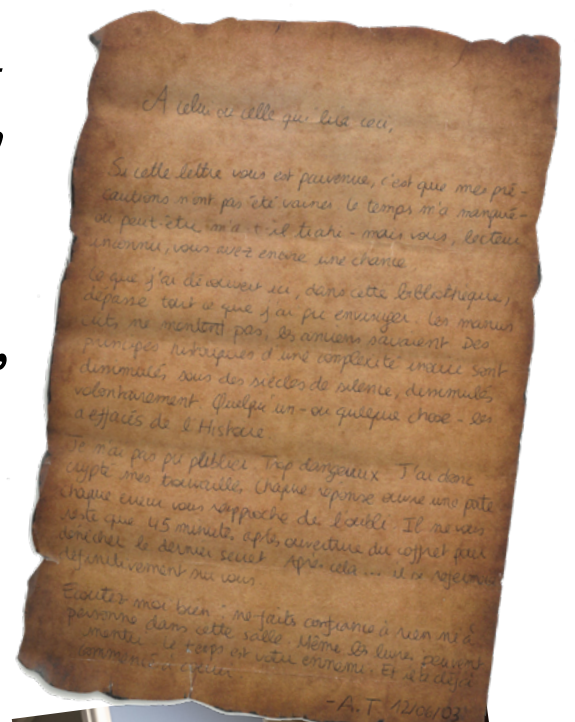 A celui ou celle qui lira ceci,
Si cette lettre vous est parvenue, c'est que mes pré-
cautions n'ont pas été vaines. Le temps m'a manqué -
ou peut-être, m'a-t-il trahi - mais vous, lecteur
inconnu, vous avez encore une chance.
Ce que j'ai découvert ici, dans cette bibliothèque,
dépasse tout ce que j'ai pu envisager. Les manus
crits ne mentent pas, les anciens savaient. Des
principes historiques d'une complexité inouïe sont
dissimulés sous des siècles de silence, dissimulés
volontairement. Quelqu'un - ou quelque chose - les
a effacés de l'Histoire.
Je n'ai pas pu publier. Trop dangereux. J'ai donc
crypté mes trouvailles. Chaque réponse ouvre une porte
chaque erreur vous rapproche de l'oubli. Il ne vous
reste que 45 minutes après ouverture du coffret pour
dénicher le dernier secret. Après cela... il se refermera
définitivement sur vous.
Ecoutez moi bien : ne faites confiance à rien ni à
personne dans cette salle. Même les livres peuvent
mentir. Le temps est votre ennemi. Et il a déjà
commencé à couler
-A.T. 12/06/03